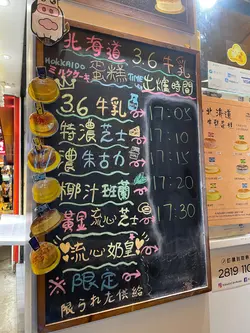 北海道 3.6牛乳
HOKKAIDO 蛋糕 TIME 出爐時間
ミルクケーキ
3.6牛乳 → 17:05
特濃芝士 → 17:10
濃朱古力 → 17:15
椰汁班蘭 → 17:20
黃金流心芝士 → 17:30
流心奶皇
※限定
限られた供給
北海道
2819 110